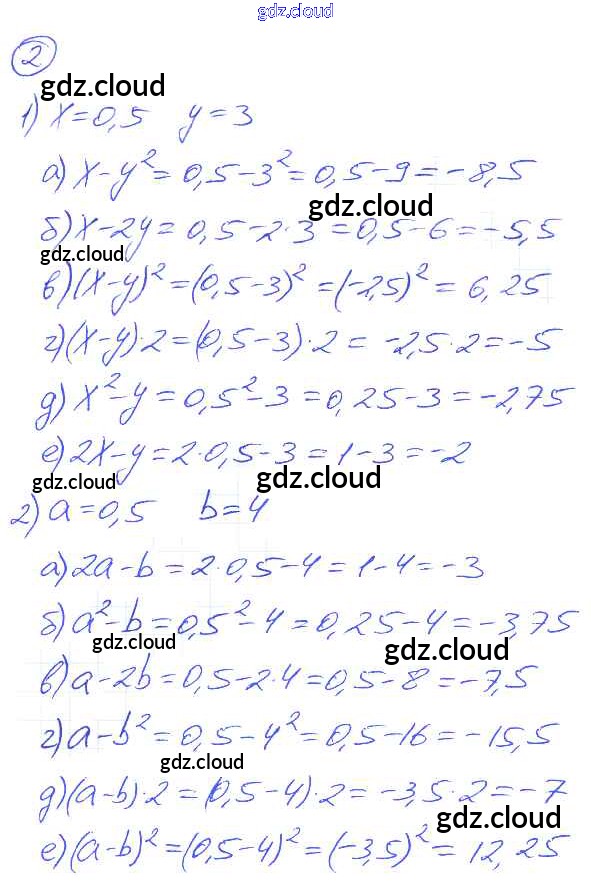 gdz.cloud
2
gdz.cloud
1) x=0,5 y=3
а) x-y²=0,5-3²=0,5-9=-8,5
gdz.cloud
б) x-2y=0,5-2·3=0,5-6=-5,5
gdz.cloud
в) (x-y)²=(0,5-3)²=(-2,5)²=6,25
г) (x-y)·2=(0,5-3)·2=-2,5·2=-5
д) x²-y=0,5²-3=0,25-3=-2,75
е) 2x-y=2·0,5-3=1-3=-2
gdz.cloud gdz.cloud
2) a=0,5 b=4
а) 2a-b=2·0,5-4=1-4=-3
б) a²-b=0,5²-4=0,25-4=-3,75
gdz.cloud gdz.cloud
в) a-2b=0,5-2·4=0,5-8=-7,5
г) a-b²=0,5-4²=0,5-16=-15,5
gdz.cloud
д) (a-b)·2=(0,5-4)·2=-3,5·2=-7
gdz.cloud
е) (a-b)²=(0,5-4)²=(-3,5)²=12,25